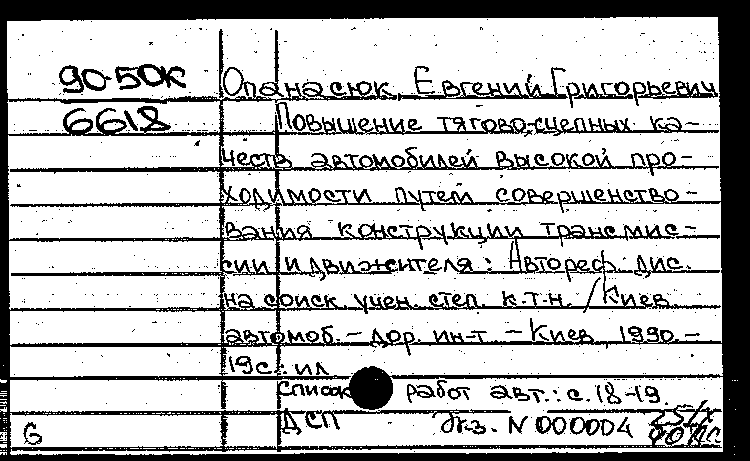 90-50К
6618
Опанасюк, Евгений Григорьевич
Повышение тягово-сцепных ка-
честв автомобилей высокой про-
ходимости путем совершенство-
вания конструкции трансмис-
сии и движителя: Автореф. дис.
на соиск. учен. степ. к.т.н. / Киев.
автомоб. - дор. ин-т. - Киев, 1990. -
19 с.: ил
Список работ авт.: с. 18-19.
ДСП Экз. N 000004
6